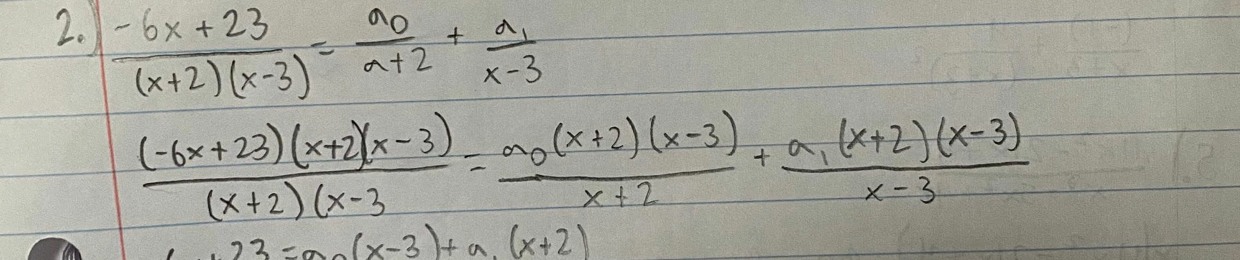 2.) (-6x+23)/((x+2)(x-3)) = a₀/(a+2) + a₁/(x-3)
((-6x+23)(x+2)(x-3))/((x+2)(x-3) = (a₀(x+2)(x-3))/(x+2) + (a₁(x+2)(x-3))/(x-3)
+23 = a₀(x-3) + a₁(x+2)